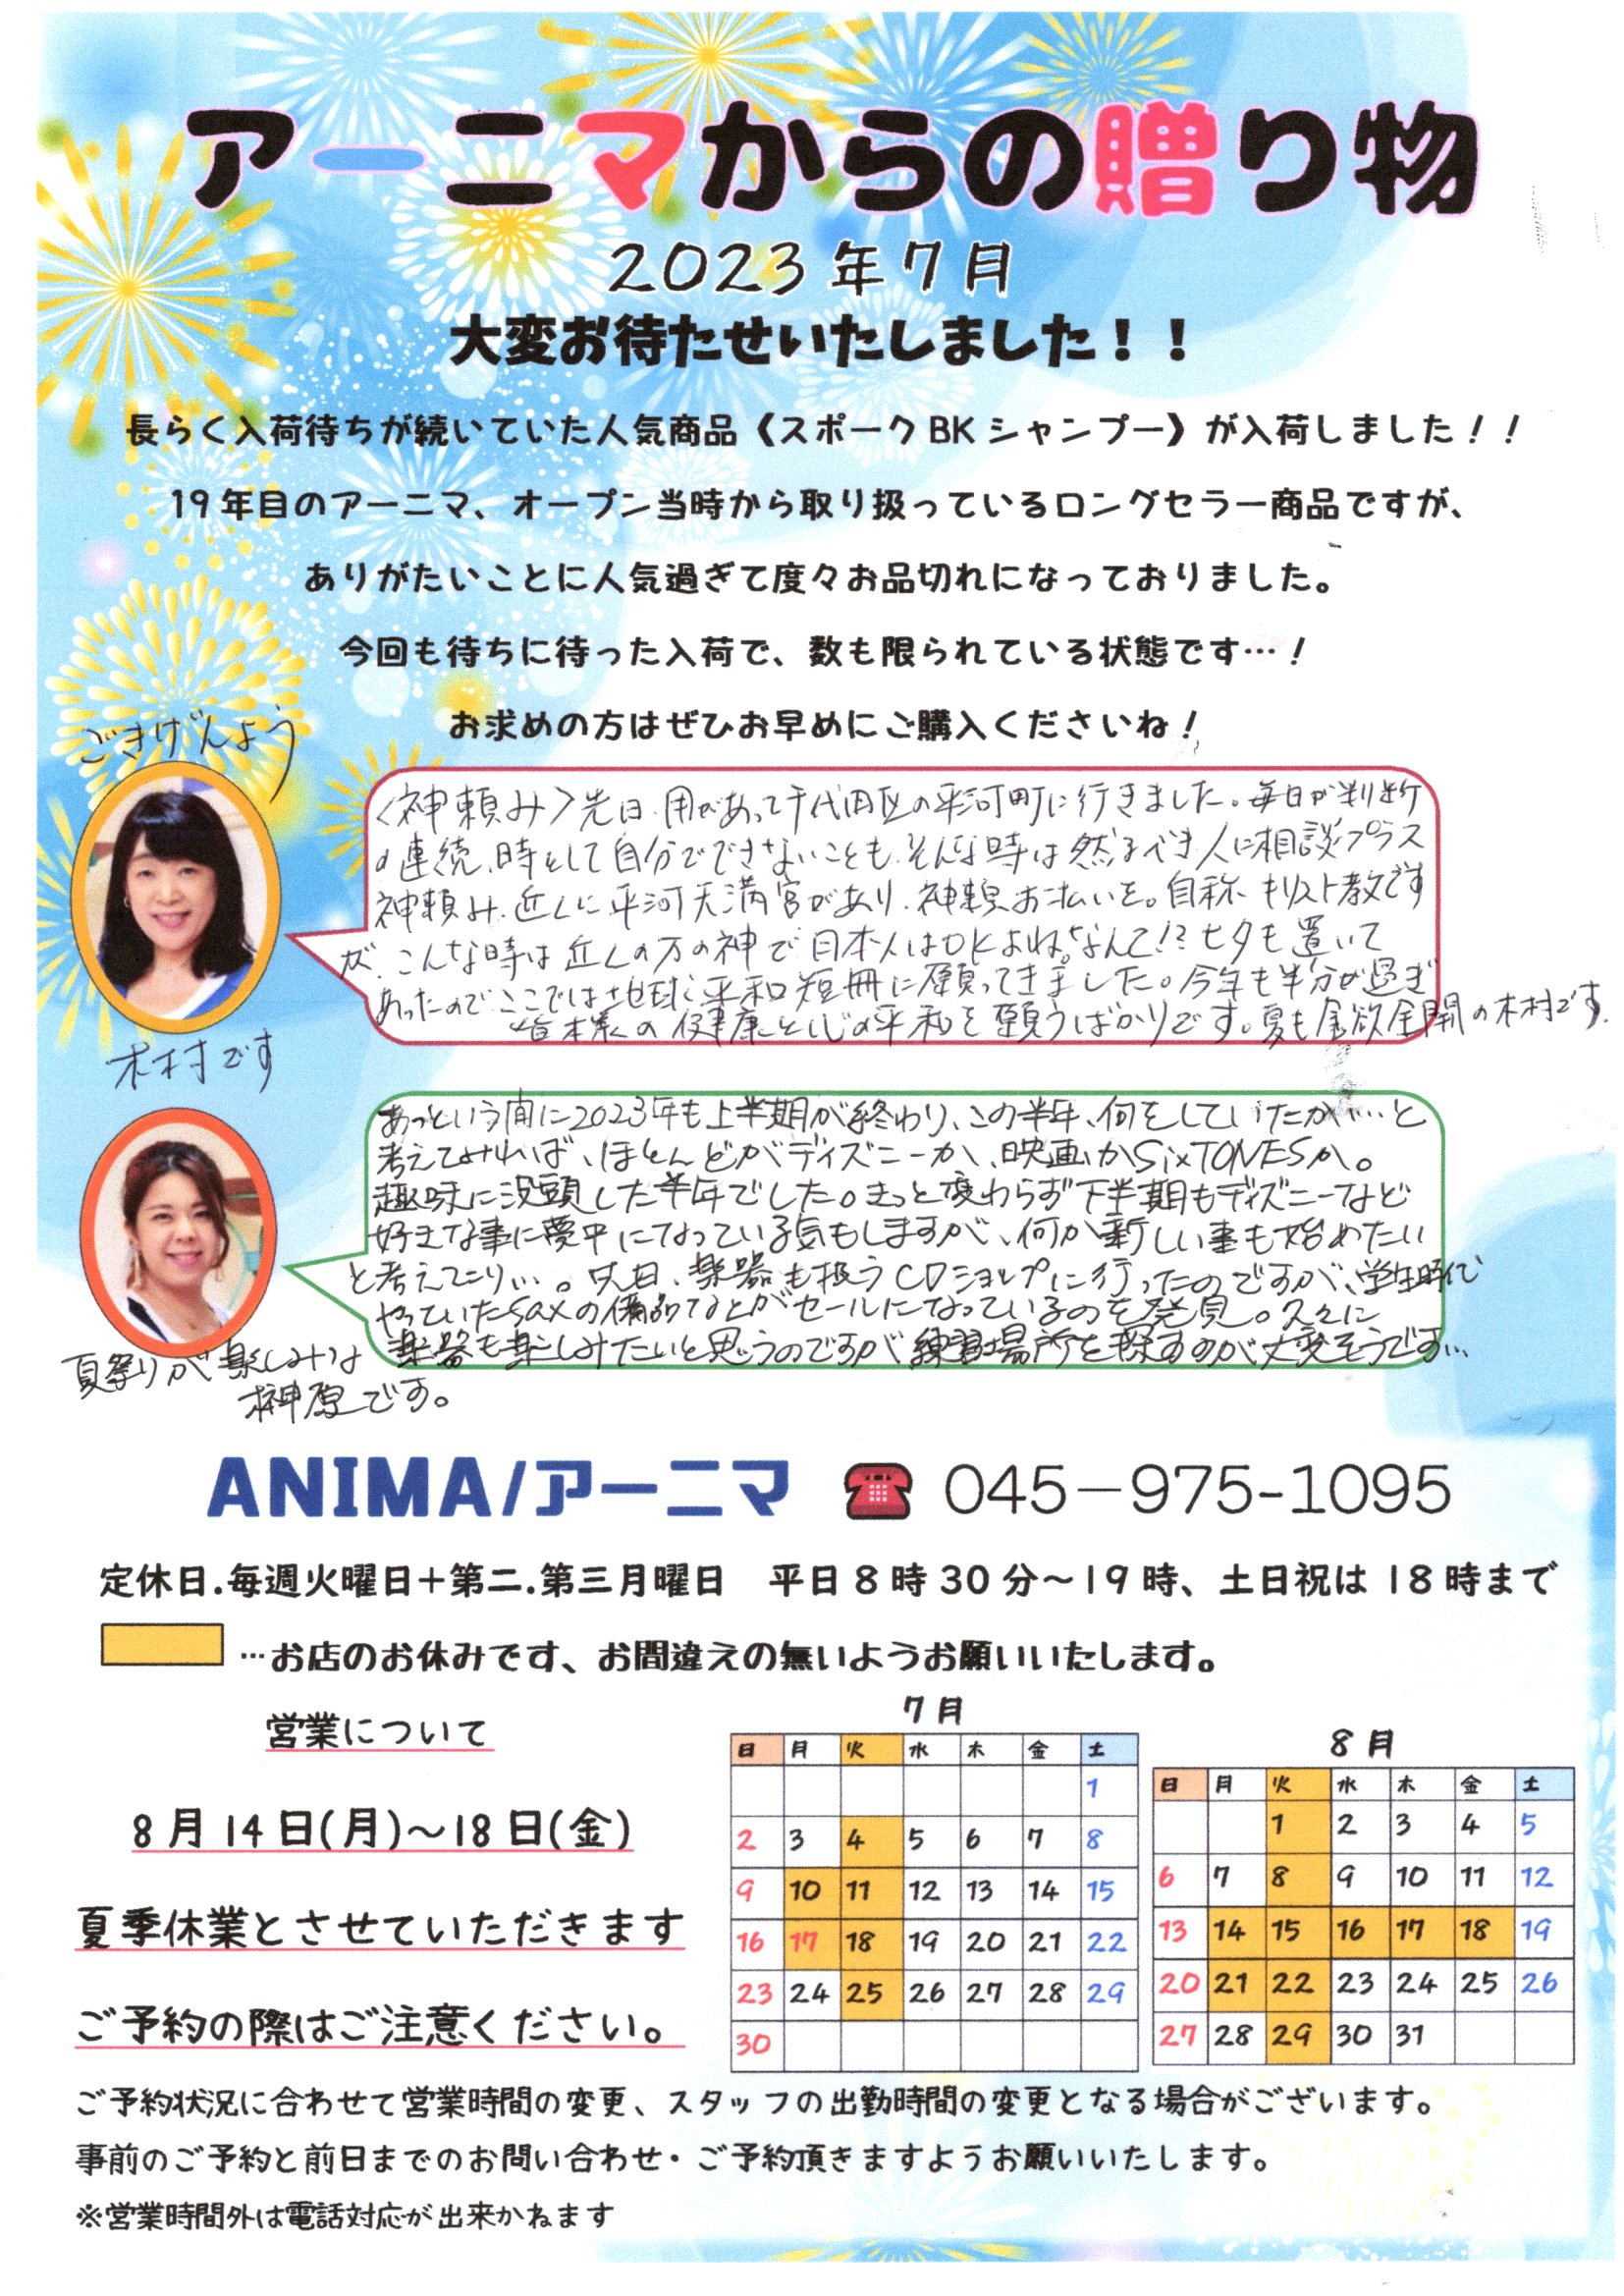 アーニマからの贈り物
2023年7月
大変お待たせいたしました！！
長らく入荷待ちが続いていた人気商品《スポークBKシャンプー》が入荷しました！！
19年目のアーニマ、オープン当時から取り扱っているロングセラー商品ですが、
ありがたいことに人気過ぎて度々お品切れになっておりました。
今回も待ちに待った入荷で、数も限られている状態です…！
お求めの方はぜひお早めにご購入くださいね！
ごきげんよう
〈神頼み〉先日、用があって千代田区の平河町に行きました。毎日が判断
の連続、時として自分でできないことも、そんな時は然るべき人に相談プラス
神頼み、近くに平河天満宮があり、神頼お払いを。自称キリスト教です
が、こんな時は近くの方の神で日本人はOKよね。なんて！？七夕も置いて
あったので、ここでは地球平和短冊に願ってきました。今年も半分が過ぎ
皆様の健康と心の平和を願うばかりです。夏も全欲全開の木村です。
木村です
あっという間に2023年も上半期が終わり、この半年、何をしていたか…と
考えてみれば、ほとんどがディズニーか、映画かSixTONESか。
趣味に没頭した半年でした。きっと変わらず下半期もディズニーなど
好きな事に夢中になっている気もしますが、何か新しい事も始めたい
と考えており…。先日、楽器も扱うCDショップに行ったのですが、学生時代
やっていたsaxの備品などがセールになっているのを発見。久々に
楽器も楽しみたいと思うのですが練習場所を探すのが大変そうです…
夏祭りが楽しみな
榊原です。
ANIMA/アーニマ ☎ 045－975-1095
定休日.毎週火曜日＋第二.第三月曜日　平日8時30分～19時、土日祝は18時まで
…お店のお休みです、お間違えの無いようお願いいたします。
営業について
8月14日(月)～18日(金)
夏季休業とさせていただきます
ご予約の際はご注意ください。
7月
日 月 火 水 木 金 土
1
2 3 4 5 6 7 8
9 10 11 12 13 14 15
16 17 18 19 20 21 22
23 24 25 26 27 28 29
30
8月
日 月 火 水 木 金 土
1 2 3 4 5
6 7 8 9 10 11 12
13 14 15 16 17 18 19
20 21 22 23 24 25 26
27 28 29 30 31
ご予約状況に合わせて営業時間の変更、スタッフの出勤時間の変更となる場合がございます。
事前のご予約と前日までのお問い合わせ・ご予約頂きますようお願いいたします。
※営業時間外は電話対応が出来かねます